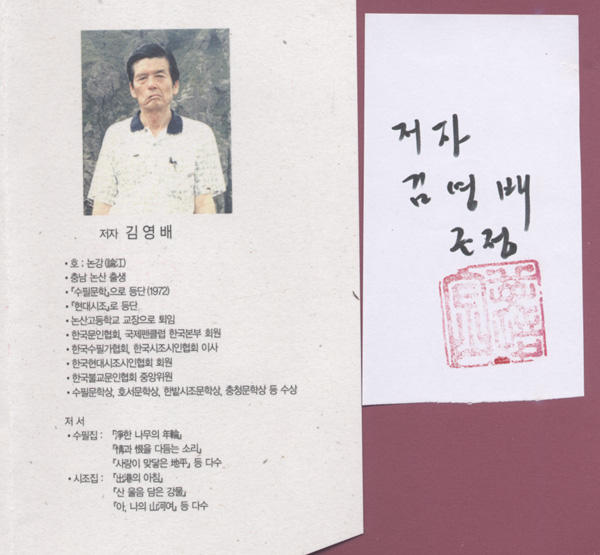 저자 김영배
• 호 : 논강(論江)
• 충남 논산 출생
• 「수필문학」으로 등단(1972)
• 「현대시조」로 등단
• 논산고등학교 교장으로 퇴임
• 한국문인협회, 국제펜클럽 한국본부 회원
• 한국수필가협회, 한국시조시인협회 이사
• 한국현대시조시인협회 회원
• 한국불교문인협회 중앙위원
• 수필문학상, 호서문학상, 한밭시조문학상, 충청문학상 등 수상
저 서
• 수필집 : 「淨한 나무의 年輪」
「情과 恨을 다듬는 소리」
「사랑이 맞닿은 地平」 등 다수
• 시조집 : 「出港의 아침」
「산 울음 담은 강물」
「아, 나의 山河여」 등 다수
저자
김영배
근정